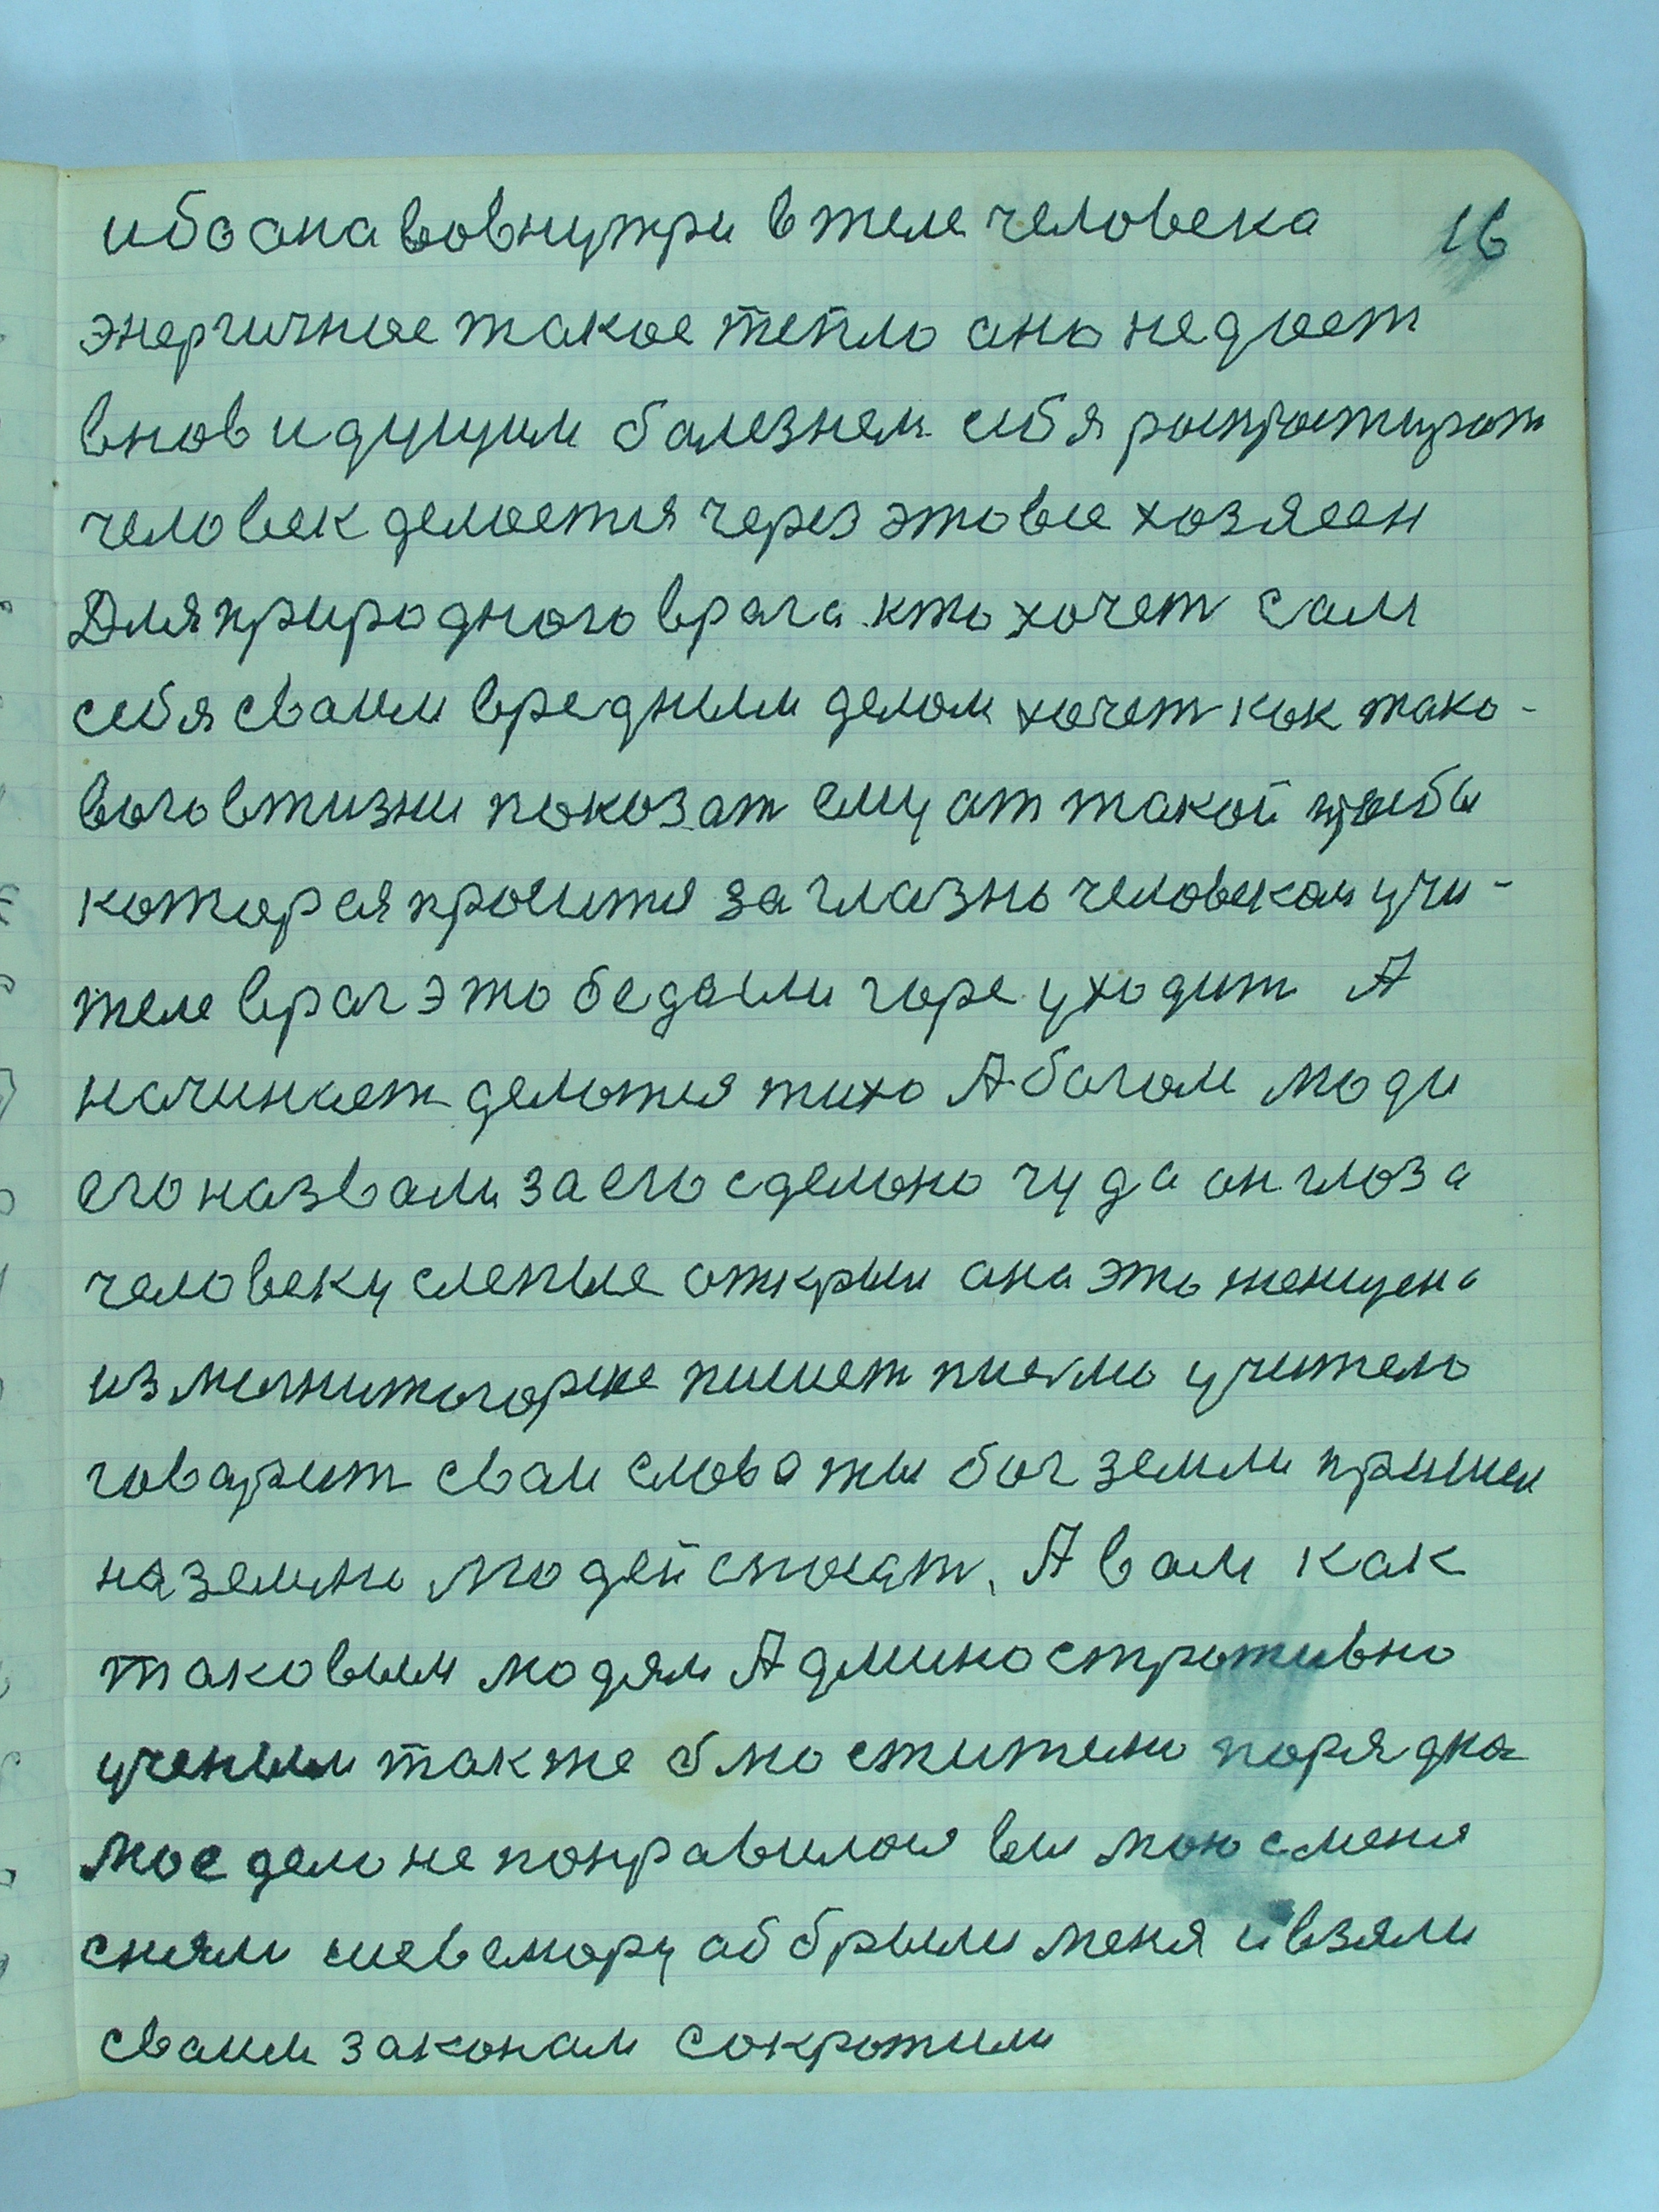 ибо она вовнутри в теле человека 16
энергичное такое тепло оно не дает
внов идущим болезнем себя роспростирот
человек делается через это все хозяеен
Для природного врага кто хочет сам
себя своим вредным делом хочет как тако-
вого в жизни показат ему от такой прозбы
которая просится заглазно человеком учи-
теле враг это беда или горе уходит А
начинает делатся тихо А богом люди
его назвали за его сделано чуда он глоза
человеку слепые открыл она это женщена
из магнитогорске пишет писмо учителю
говарит сваи слова ты бог земли пришел
на землю людей спасат. А вам как
таковым людям Админостротивно
ученым также блюстителю порядка
мое дело не понравилос вы мою с меня
сняли шевелюру аббрыли меня и взяли
сваим законам сокротили